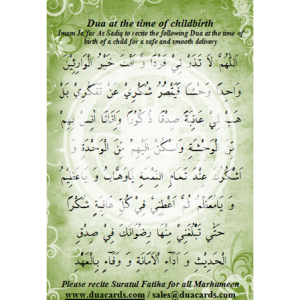 Dua at the time of childbirth
Imam Ja'far As Sadiq to recite the following Dua at the time of
birth of a child for a safe and smooth delivery
اَللّٰهُمَّ لَا تَذَرْ نِي فَرْدًا وَّ اَنْتَ خَيْرُ الْوَارِثِيْنَ
وَاحِدٍ وَحْشًا فَيَقْصُرُ شُكْرِيْ عَنْ تَفَكُّرِيْ بَلْ
هَبْ لِي عَاقِبَةَ صِدْقًا ذُ كُوْرًا وَاُنَاثًا اٰنِسُ بِهِمْ
مِنَ الْوَحْشَةِ وَاَسْكُنُ اِلَيْهِمْ مِنَ الْوَحْدَةِ وَ
اَشْكُرُكَ عِنْدَ تَمَامِ النِّعْمَةِ يَاوَهَّابُ وَ يَاعَظِيْمُ
وَ يَامُعَظِّمُ ثُمَّ اَعْطِنِيْ فِيْ كُلِّ عَاقِبَةٍ شُكْرًا
حَتّٰى تُبَلِّغَنِيْ مِنْهَا رِضْوَانَكَ فِيْ صِدْقِ
الْحَدِيْثِ وَ اَدَاۤءِ الْاَمَانَةِ وَ وَفَاۤءٍ بِالْعَهْدِ
Please recite Suratul Fatiha for all Marhumeen
www.duacards.com / sales@duacards.com